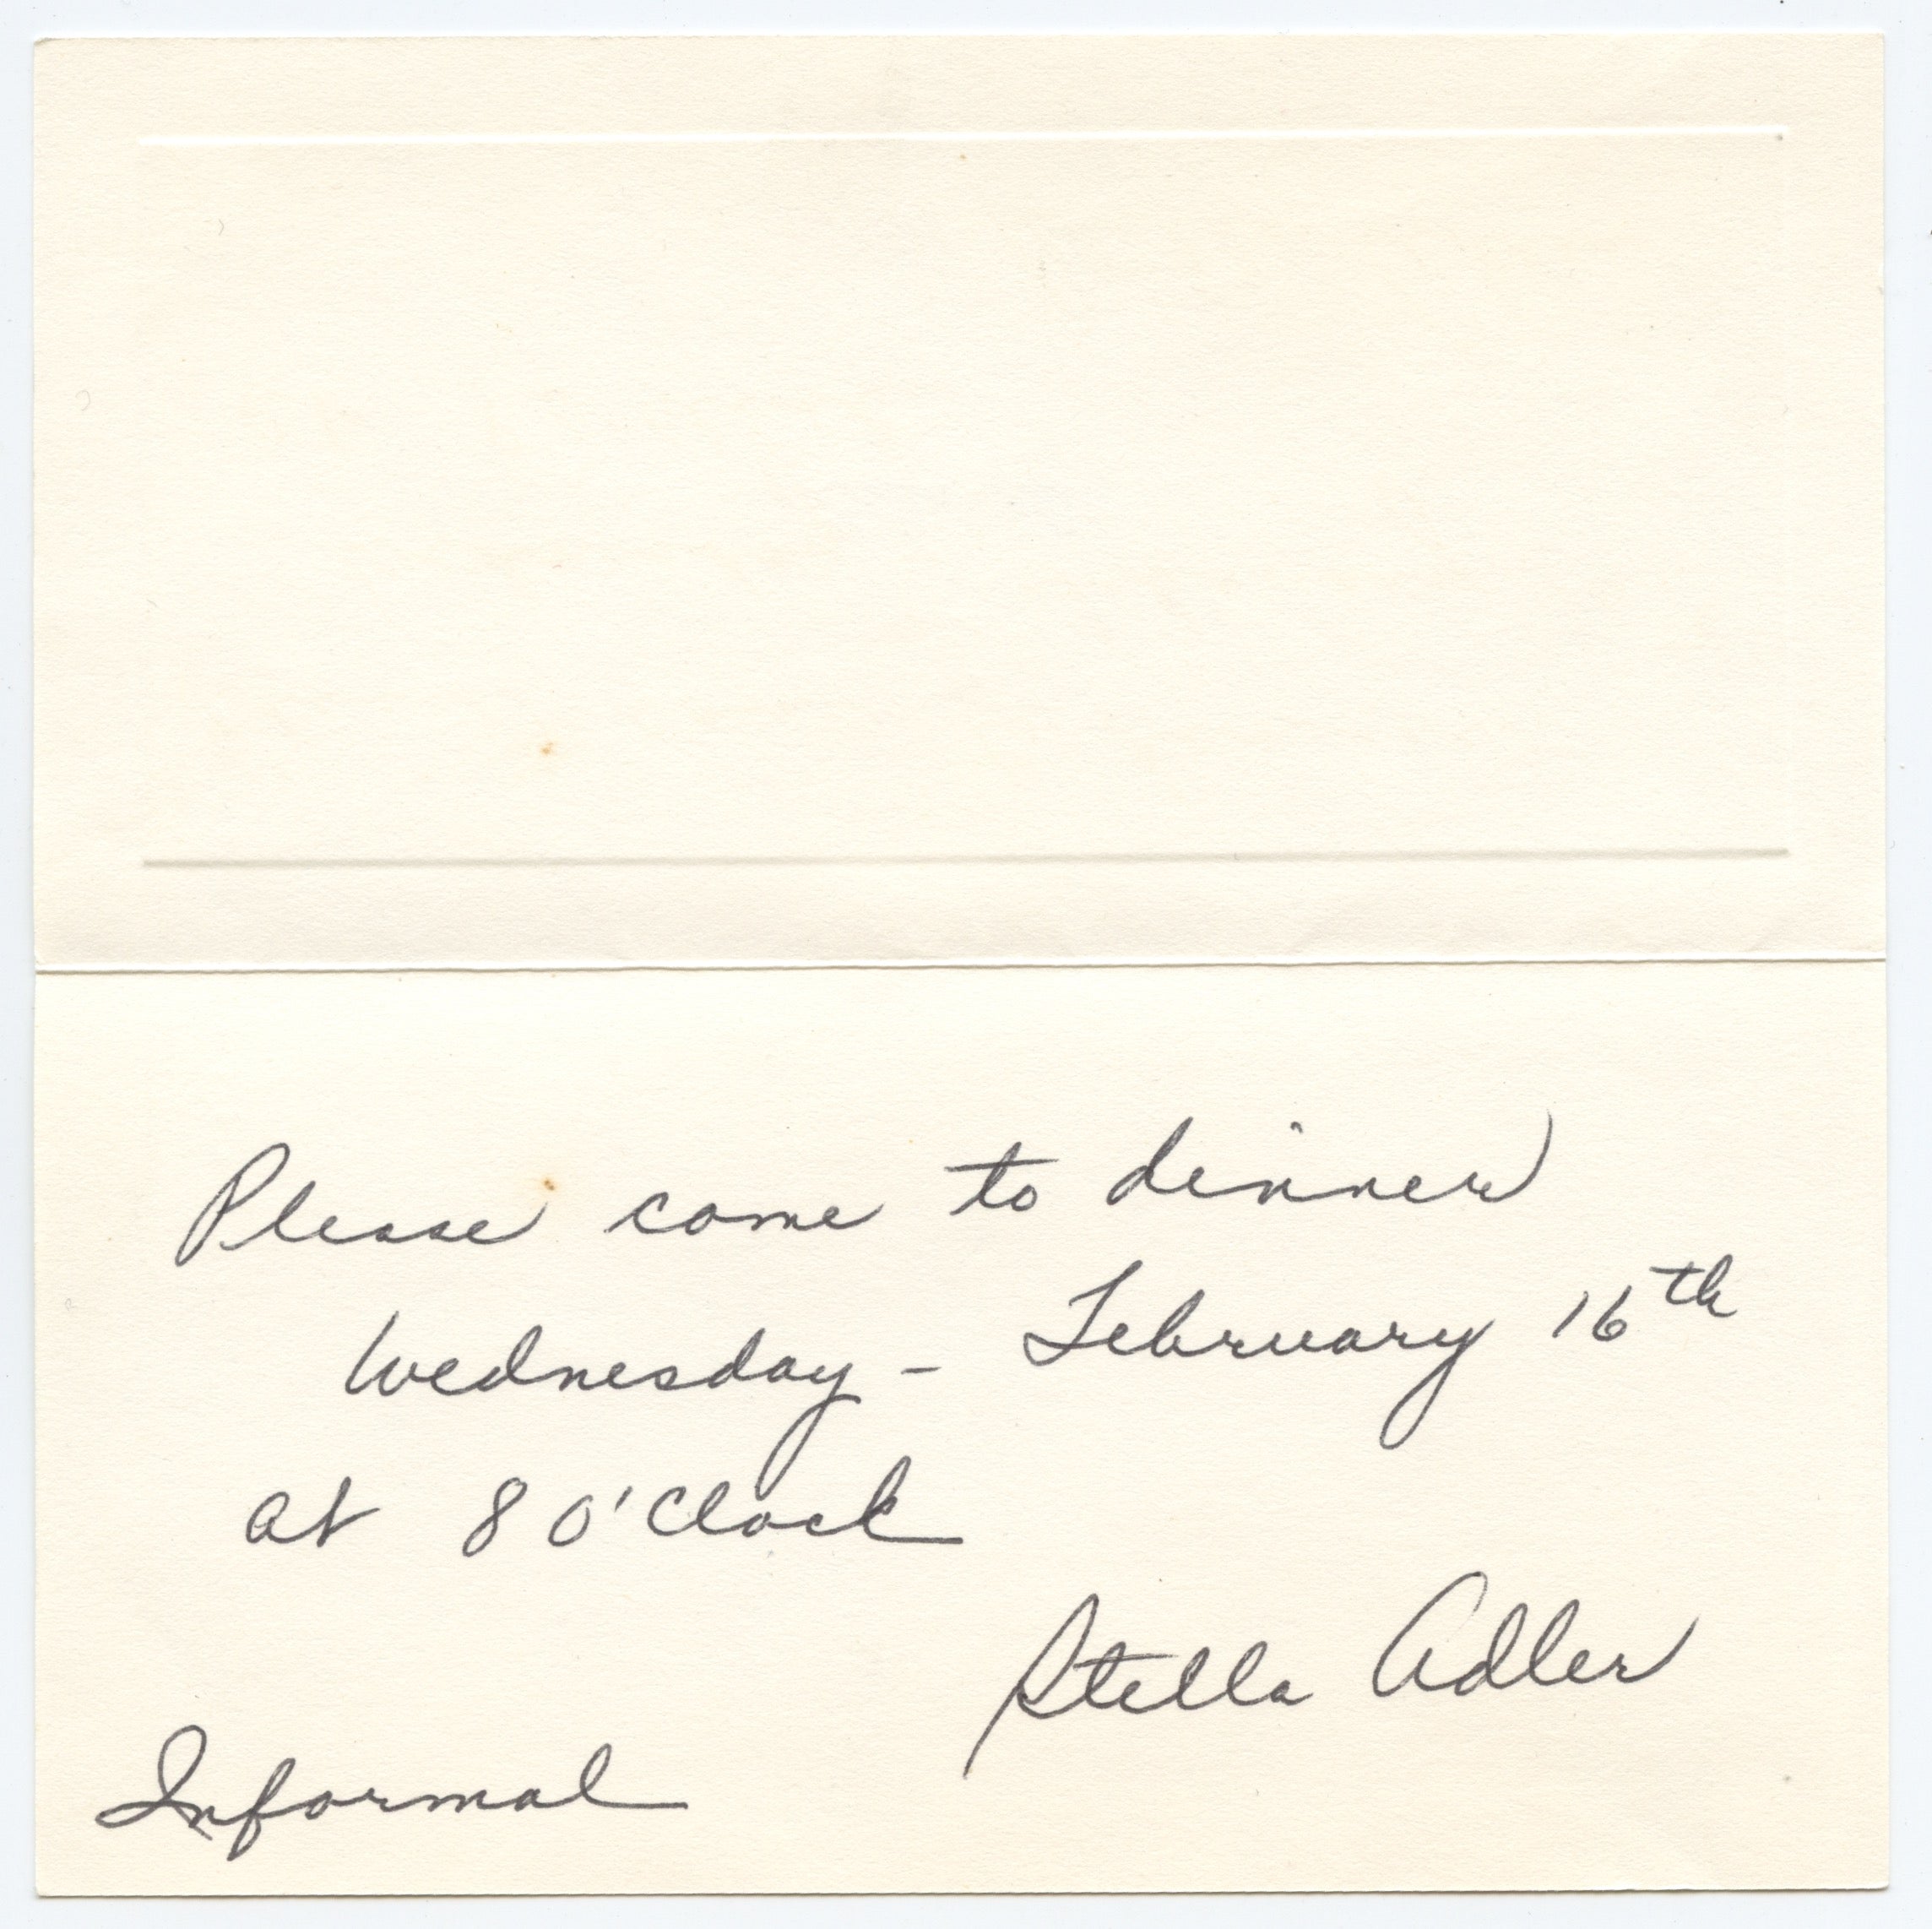 Please come to dinner
Wednesday - February 16th
at 8 O'Clock
Stella Adler
Informal